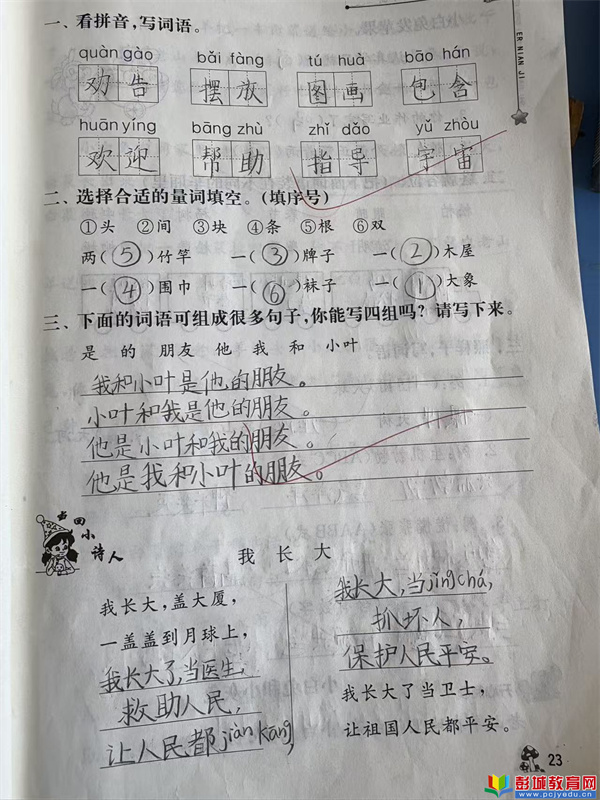 一、看拼音,写词语。
quàn gào bǎi fàng tú huà bāo hán
劝告 摆放 图画 包含
huān yíng bāng zhù zhǐ dǎo yǔ zhòu
欢迎 帮助 指导 宇宙
二、选择合适的量词填空。(填序号)
①头 ②间 ③块 ④条 ⑤根 ⑥双
两(⑤)竹竿 一(③)牌子 一(②)木屋
一(④)围巾 一(⑥)袜子 一(①)大象
三、下面的词语可组成很多句子,你能写四组吗?请写下来。
是 的 朋友 他 我 和 小叶
我和小叶是他的朋友。
小叶和我是他的朋友。
他是小叶和我的朋友。
他是我和小叶的朋友。
当回小诗人
我长大
我长大,盖大厦,
一盖盖到月球上,
我长大了,当医生,
救助人民,
让人民都jiàn kāng,
我长大,当jǐng chá,
抓坏人,
保护人民平安。
我长大了当卫士,
让祖国人民都平安。
23
ER NIAN JI
彭城教育网
www.pcjyedu.cn